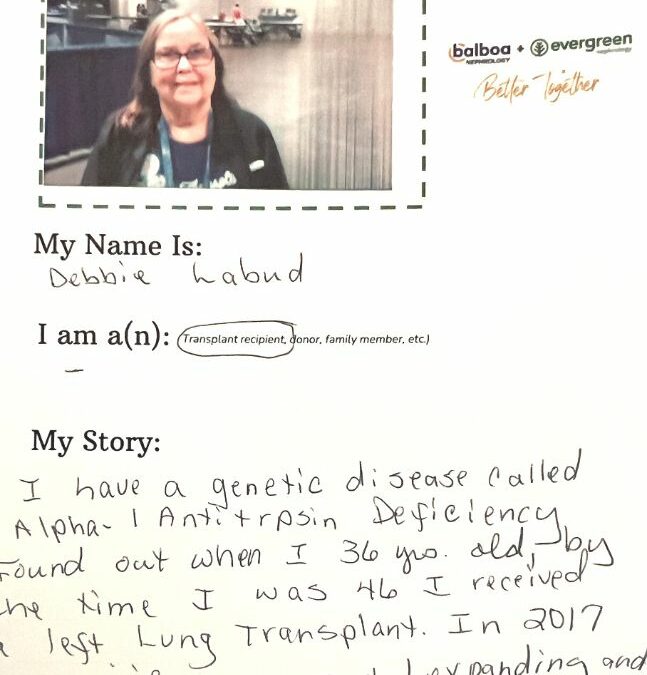 balboa + evergreen
NEPHROLOGY nephrology
Better Together
My Name Is:
Debbie Labud
I am a(n): (Transplant recipient, donor, family member, etc.)
My Story:
I have a genetic disease called
Alpha-1 Antitrpsin Deficiency
Found out when I 36 yrs. old, by
he time I was 46 I received
left Lung Transplant. In 2017
expanding and